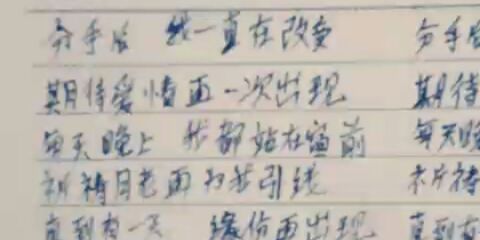 分手后 我一直在改变 分手后
期待爱情再一次出现 期待
每天晚上 我都站在窗前 每天晚
祈祷月老再为我引线 祈祷
直到有一天 缘份再出现 直到有